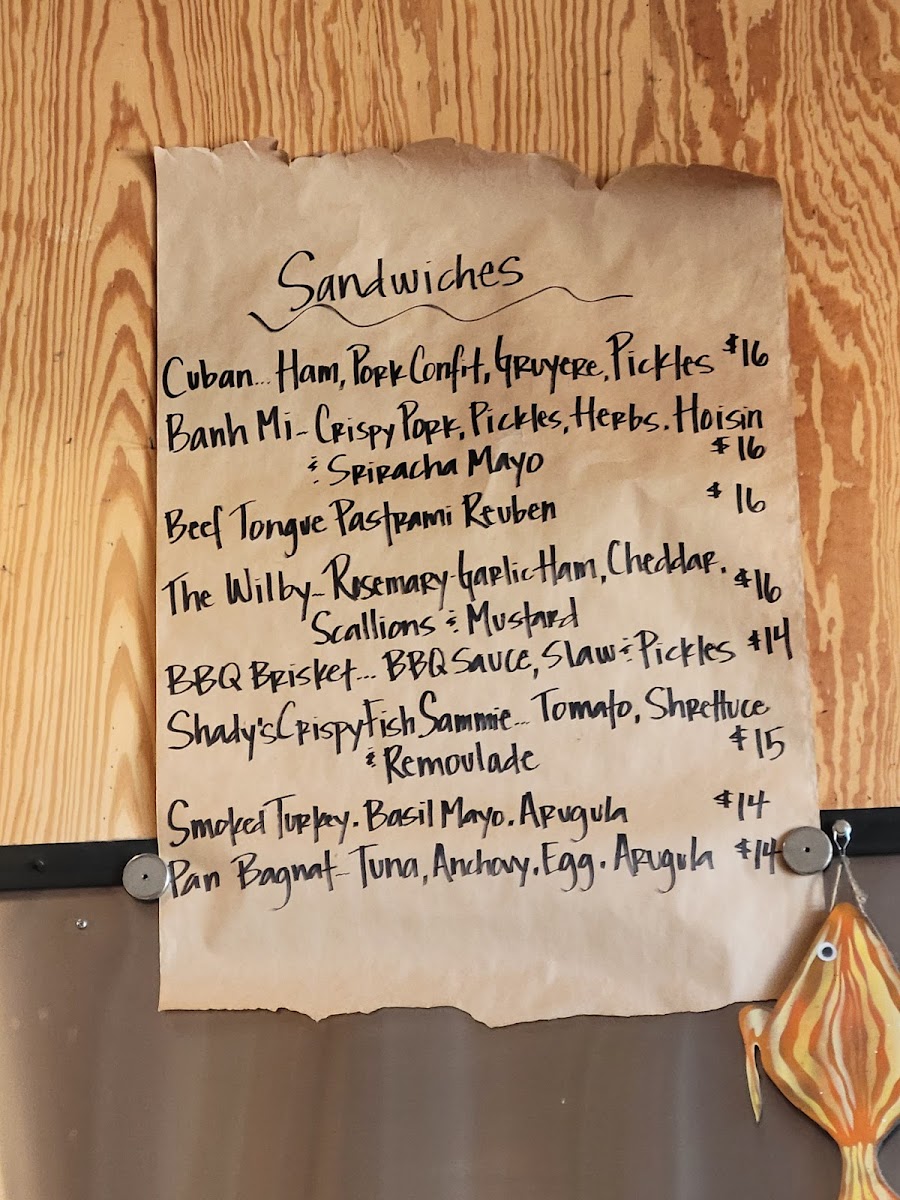 Sandwiches
Cuban... Ham, Pork Confit, Gruyere, Pickles $16
Banh Mi - Crispy Pork, Pickles, Herbs. Hoisin
& Sriracha Mayo $16
Beef Tongue Pastrami Reuben $16
The Wilby - Rosemary-Garlic Ham, Cheddar,
Scallions & Mustard $16
BBQ Brisket... BBQ Sauce, Slaw & Pickles $14
Shady's Crispy Fish Sammie... Tomato, Shrettuce
& Remoulade $15
Smoked Turkey. Basil Mayo. Arugula $14
Pan Bagnat - Tuna, Anchovy. Egg. Arugula $14